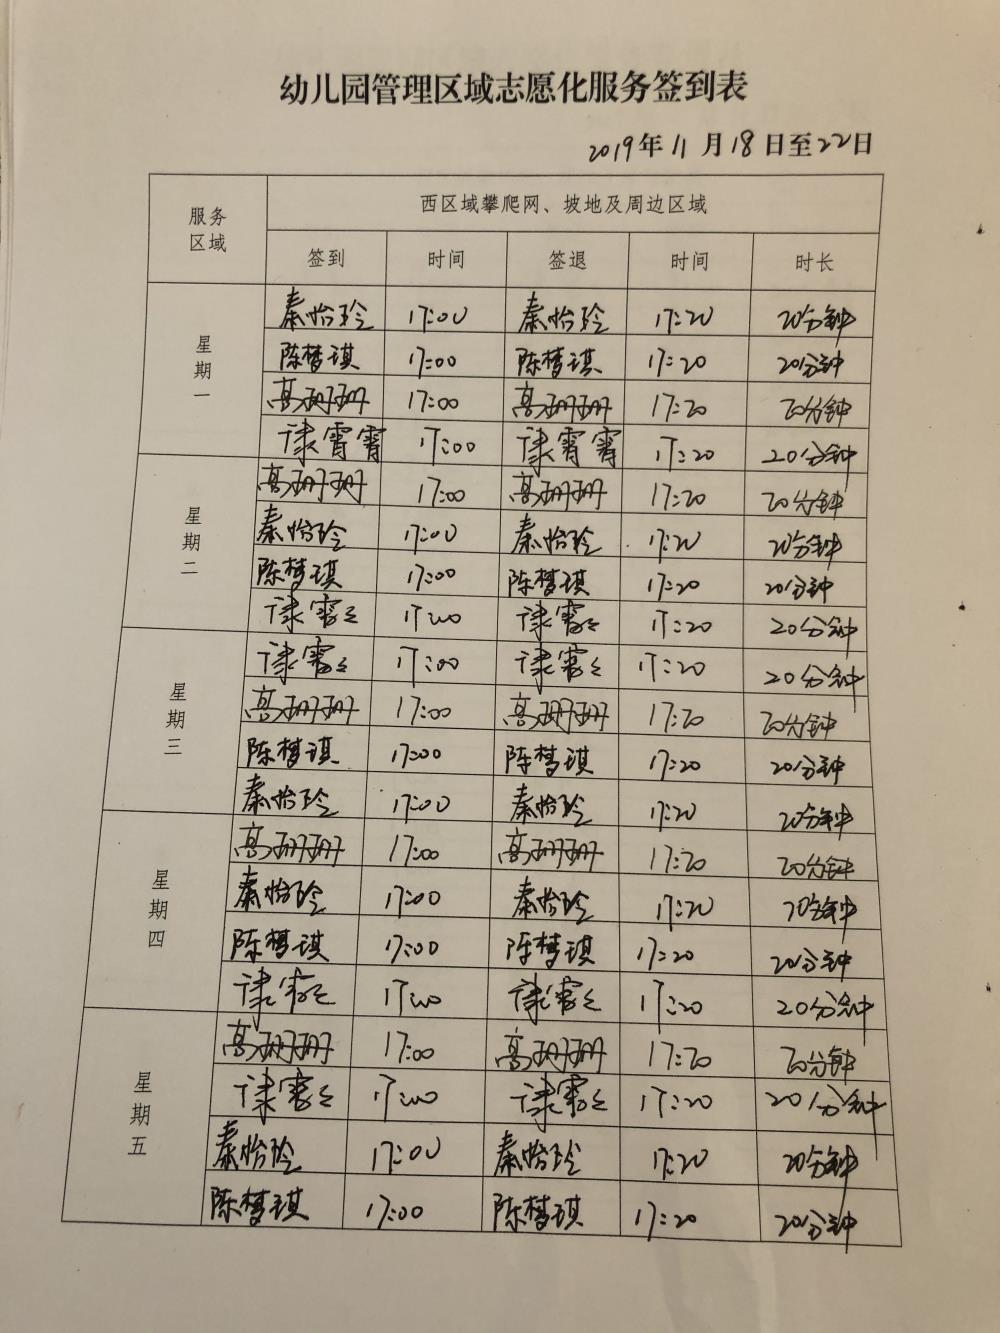 幼儿园管理区域志愿化服务签到表
2019年11月18日至22日
服务区域 西区域攀爬网、坡地及周边区域
签到 时间 签退 时间 时长
星期一
秦怡玲 17:00 秦怡玲 17:20 20分钟
陈梦琪 17:00 陈梦琪 17:20 20分钟
高珊珊 17:00 高珊珊 17:20 20分钟
霄霄 17:00 霄霄 17:20 20分钟
星期二
高珊珊 17:00 高珊珊 17:20 20分钟
秦怡玲 17:00 秦怡玲 17:20 20分钟
陈梦琪 17:00 陈梦琪 17:20 20分钟
17:00 17:20 20分钟
星期三
17:00 17:20 20分钟
高珊珊 17:00 高珊珊 17:20 20分钟
陈梦琪 17:00 陈梦琪 17:20 20分钟
秦怡玲 17:00 秦怡玲 17:20 20分钟
星期四
高珊珊 17:00 高珊珊 17:20 20分钟
秦怡玲 17:00 秦怡玲 17:20 20分钟
陈梦琪 17:00 陈梦琪 17:20 20分钟
17:00 17:20 20分钟
星期五
高珊珊 17:00 高珊珊 17:20 20分钟
17:00 17:20 20分钟
秦怡玲 17:00 秦怡玲 17:20 20分钟
陈梦琪 17:00 陈梦琪 17:20 20分钟